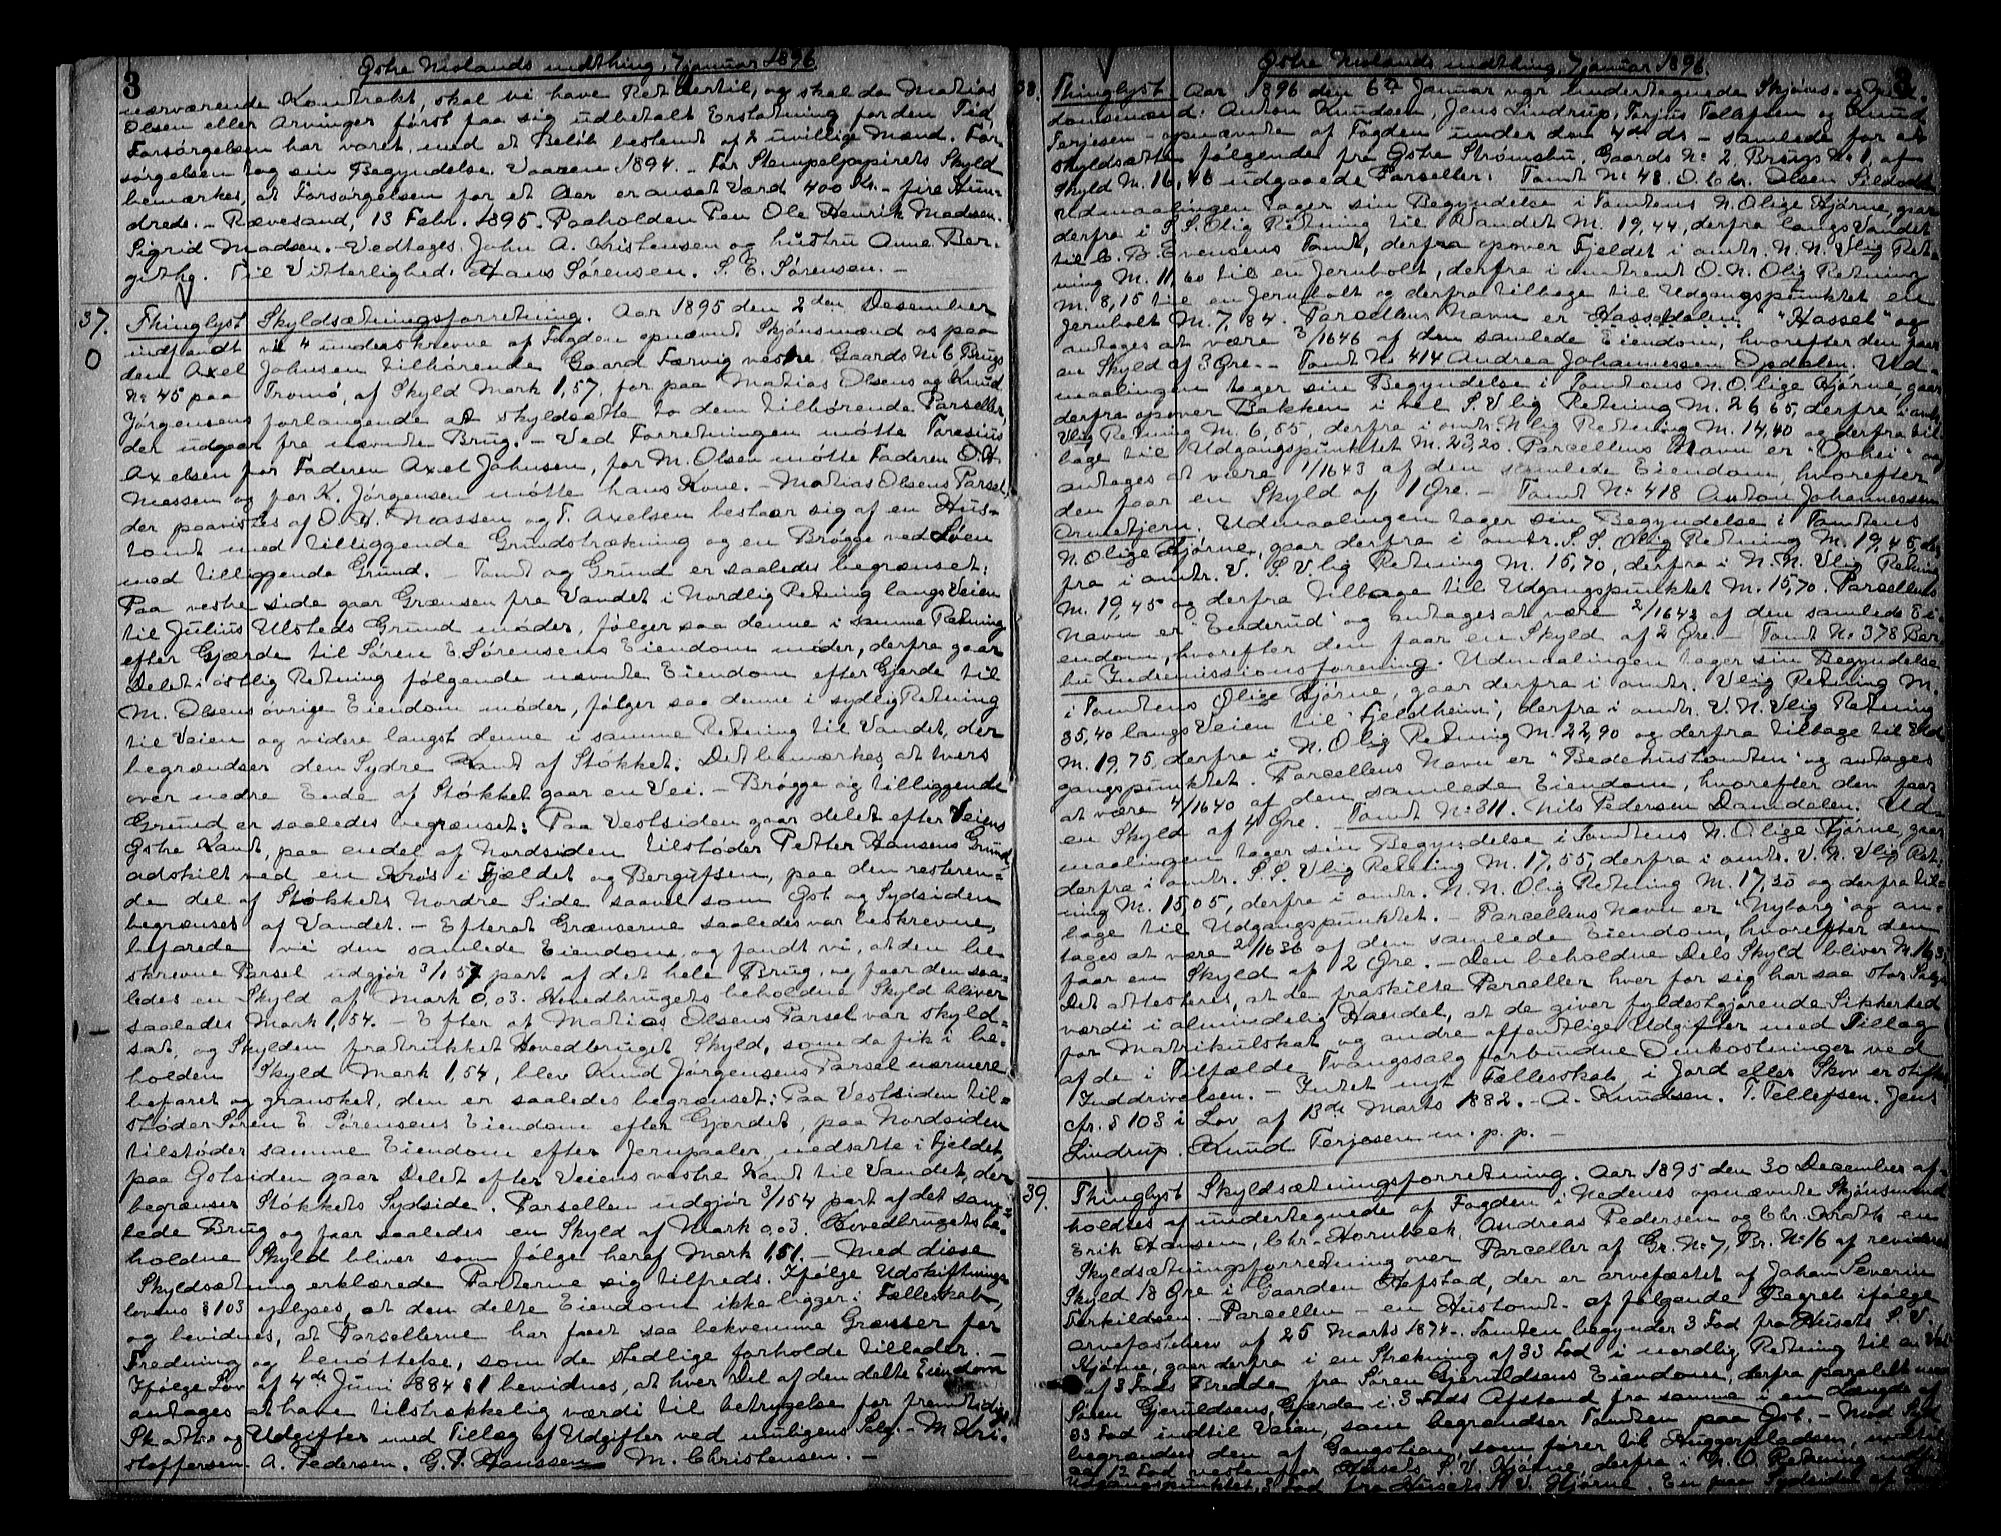 3
Østre Nedenes midthing, 7 januar 1896
nærværende Kontrakt, skal vi have Ret dertil, og skal da Mathias
Olsen eller Arvinger først paa sig udbetalt Erstatning for den Tid
Forsørgelsen har varet, med et Beløb bestemt af 2 uvillige Mænd. For
sørgelsen tog sin Begyndelse Vaaren 1894. - For Stempelpapirets Skyld
bemærkes, at Forsørgelsen for et Aar er anset Værd 400 Kr. - fire Hun-
drede. - Rævesand, 13 Febr. 1895. Paaholden Pen Ole Henrik Madsen.
Sigrid Madsen. - Vedtages. John A. Kristensen og hustru Anne Ber-
githe. Til Vitterlighed: Hans Sørensen. S. E. Sørensen. -
37.
0
Thinglyst Skyldsætningsforretning. Aar 1895 den 2den Desember
indfandt vi 4 underskrevne af Fogden opnævnt Skjønsmænd os paa
den Axel Johnsen tilhørende Gaard Færvig vestre Gaards № 6 Brugs
№ 45 paa Tromø, af Skyld Mark 1,57, for paa Mathias Olsens og Knud
Jørgensens forlangende at skyldsætte to dem tilhørende Parseller,
der udgaar fra nævnte Brug. - Ved Forretningen møtte Taresius
Axelsen for Faderen Axel Johnsen, for M. Olsen møtte Faderen O. H.
Massen og for K. Jørgensen møtte hans Kone. - Matias Olsens Parsel,
der paavistes af O. H. Massen og T. Axelsen bestaar sig af en Hus-
tomt med tilliggende Grundstrækning og en Brøgge ved Søen
med tilliggende Grund. - Tomt og Grund er saaledes begrænset:
Paa vestre side gaar Grænsen fra Vandet i Nordlig Retning langs Veien
til Julius Ulsteds Grund møder, følger saa denne i samme Retning
efter Gjærde til Søren E. Sørensens Eiendom møder, derfra gaar
Delet i østlig Retning følgende nævnte Eiendom efter Gjerde til
M. Olsens øvrige Eiendom møder, følger saa denne i sydlig Retning
til Veien og videre langst denne i samme Retning til Vandet, der
begrændser den Sydre Kant af Støkket. Det bemærkes, at tvers
over nedre Ende af Støkket gaar en Vei. - Brøgge og tilliggende
Grund er saaledes begrænset: Paa Vestsiden gaar delet efter Veiens
Østre Kant, paa endel af Nordsiden tilstøder Petter Hansens Grund
adskilt ved en Kros i Fjældet og Bergufsen, paa den resteren-
de del af Støkkets Nordre Side saavel som Øst og Sydsiden
begrænses af Vandet. - Efterat Grænserne saaledes var beskrevne,
befarede vi den samlede Eiendom og fandt vi, at den be-
skrevne Parsel udgjør 3/157 part af det hele Brug, og faar den saa-
ledes en Skyld af Mark 0,03. Hovedbrugets beholdne Skyld bliver
saaledes Mark 1,54. - Efter at Matias Olsens Parsel var skyld-
sat, og Skylden fratrukket Hovedbruget Skyld, som da fik i be-
holden Skyld Mark 1,54, blev Knud Jørgensens Parsel nærmere
befaret og gransket, den er saaledes begrænset: Paa Vestsiden til-
støder Søren E. Sørensens Eiendom efter Gjærdet, paa Nordsiden
tilstøder samme Eiendom efter Jernpaaler, nedsatte i Fjeldet,
paa Østsiden gaar Delet efter Veiens vestre Kant til Vandet, der
begrænser Støkkets Sydside. Parsellen udgjør 3/154 part af det sam-
lede Brug og faar saaledes en Skyld af Mark 0,03. Hovedbrugets be-
holdne Skyld bliver som følge heraf Mark 1,51. - Med disse
Skyldsætning erklærede Parterne sig tilfreds. Ifølge Udskiftnings-
lovens § 103 oplyses, at den delte Eiendom ikke ligger i Fælleskab,
og bevidnes, at Parsellerne har faaet saa bekvemme Grænser for
Fredning og benøttelse, som de stedlige forholde tillader. -
Ifølge Lov af 4de Juni 1884 § 1 bevidnes, at hver Del af den delte Eiendom
antages at have tilstrækkelig værdi til betryggelse for fremtidige
Skatter og Udgifter med Tillæg af Udgifter ved muligens Salg. - M. Kri-
stoffersen. A. Pedersen. G. P. Hanssen M. Christensen. -
Østre Nedenes midthing, 7 januar 1896.
3
38.
Thinglyst Aar 1896 den 6te Januar var undertegnede Skjøns- og
domsmænd: Anton Knudsen, Jens Lindrup, Terjus Telefsen og Knud
Terjesen - opnævnte af Fogden under den 4de ds - samlede for at
skyldsætte følgende fra Østre Strømsbu, Gaards № 2, Brugs № 1, af
Skyld M. 16,46 udgaaede Parseller: Tomt № 48. O. Chr. Olsen
Udmaalingen tager sin Begyndelse i Tomtens N. Olige Hjørne, gaar
derfra i S. S. Olig Retning til Vandet M. 19,44, derfra langs Vandet
til C. B. Evensens Tomt, derfra opover Fjeldet i omtr. N. N. Vlig Ret-
ning M. 11,60 til en Jernbolt, derfra i omtrent O. N. Olig Retning
M. 8,15 til en Jernbolt og derfra tilbage til Udgangspunktet, en
Jernbolt M. 7,84. Parcellens Navn er Hassedalen "Hasset" og
antages at være 3/1646 af den samlede Eiendom, hvorefter den faar
en Skyld af 3 Øre. - Tomt № 414 Andrea Johannessen Opdalen. Ud-
maalingen tager sin Begyndelse i Tomtens N. Olige Hjørne, gaar
derfra opover Bakken i vel S. Vlig Retning M. 26,65, derfra i omtr.
Vlig Retning M. 6,85, derfra i omtr. Nlig Retning M. 14,40 og derfra til-
bage til Udgangspunktet M. 23,20. Parcellens Navn er "Ophei" og
antages at være 1/1643 af den samlede Eiendom, hvorefter
den faar en Skyld af 1 Øre. - Tomt № 418 Anton Johannessen
Ormetjern. Udmaalingen tager sin Begyndelse i Tomtens
N. Olige Hjørne, gaar derfra i omtr. S. S. Olig Retning M. 19,45, der-
fra i omtr. V. S. Vlig Retning M. 15,70, derfra i N. N. Vlig Retning
M. 19,45 og derfra tilbage til Udgangspunktet M. 15,70. Parcellens
Navn er "Enderud" og antages at være 2/1642 af den samlede Ei-
endom, hvorefter den faar en Skyld af 2 Øre. - Tomt № 378 Bar-
bu Indremissionsforening. Udmaalingen tager sin Begyndelse
i Tomtens Olige Hjørne, gaar derfra i omtr. Vlig Retning M.
35,40 langs Veien til "Fjeldheim", derfra i omtr. V. N. Vlig Retning
M. 19,75, derfra i N. Olig Retning M. 22,90 og derfra tilbage til Ud-
gangspunktet. Parcellens Navn er "Bedehustomten" og antages
at være 4/1640 af den samlede Eiendom, hvorefter den faar
en Skyld af 4 Øre. - Tomt № 311. Nils Pedersen Damdalen. Ud-
maalingen tager sin Begyndelse i Tomtens N. Olige Hjørne, gaar
derfra i omtr. S. S. Vlig Retning M. 17,55, derfra i omtr. V. N. Vlig Ret-
ning M. 15,05, derfra i omtr. N. N. Olig Retning M. 17,30 og derfra til-
bage til Udgangspunktet. - Parcellens Navn er "Nyborg" og an-
tages at være 2/1636 af den samlede Eiendom, hvorefter den
faar en Skyld af 2 Øre. - Den beholdne Dels Skyld bliver
Det attesteres, at de fraskilte Parceller hver for sig har saa stor Salgs-
værdi i almindelig Handel, at de giver fyldestgjørende Sikkerhed
for Matrikulskat og andre offentlige Udgifter med Tillæg
af de i Tilfælde Tvangssalg forbundne Omkostninger ved
Inddrivelsen. - Intet nyt Fællesskab i Jord eller Skov er stiftet
cfr. § 103 i Lov af 13de Marts 1882. - A. Knudsen. T. Tellefsen. Jens
Lindrup. Knud Terjesen m. p. p. -
39.
Thinglyst Skyldsætningsforretning. Aar 1895 den 30 December af-
holdtes af undertegnede af Fogden i Nedenes opnævnte Skjønsmænd
Erik Hansen, Chr. Hornbeek, Andreas Pedersen og Chr. Krath en
Skyldsætningsforretning over Parceller af Gr. № 7, Br. № 16 af revideret
Skyld 18 Øre i Gaarden Refstad, der er arvefæstet af Johan Severin
Terkildsen. - Parcellen - en Hustomt - af følgende Begreb ifølge
arvefæstebrev af 25 Marts 1874. Tomten begynder 3 Fod fra Husets S. V.
Hjørne, gaar derfra i en Strækning af 33 Fod i nordlig Retning til en Vei
af 3 Fods Bredde fra Søren Gjeruldsens Eiendom, derfra paralelt med
Søren Gjeruldsens Gjærde i 3 Fods Afstand fra samme i en Længde af
33 Fod indtil Veien, som begrændser Tomten paa Øst. - Mod Syd
begrændses den af Gangstien, som fører til Huggepladsen, indtil
12 Fod vestenfor Husets S. V. Hjørne, derfra i N. O. Retning indtil
Fod fra Husets N. V. Hjørne. En paa Sydsiden af